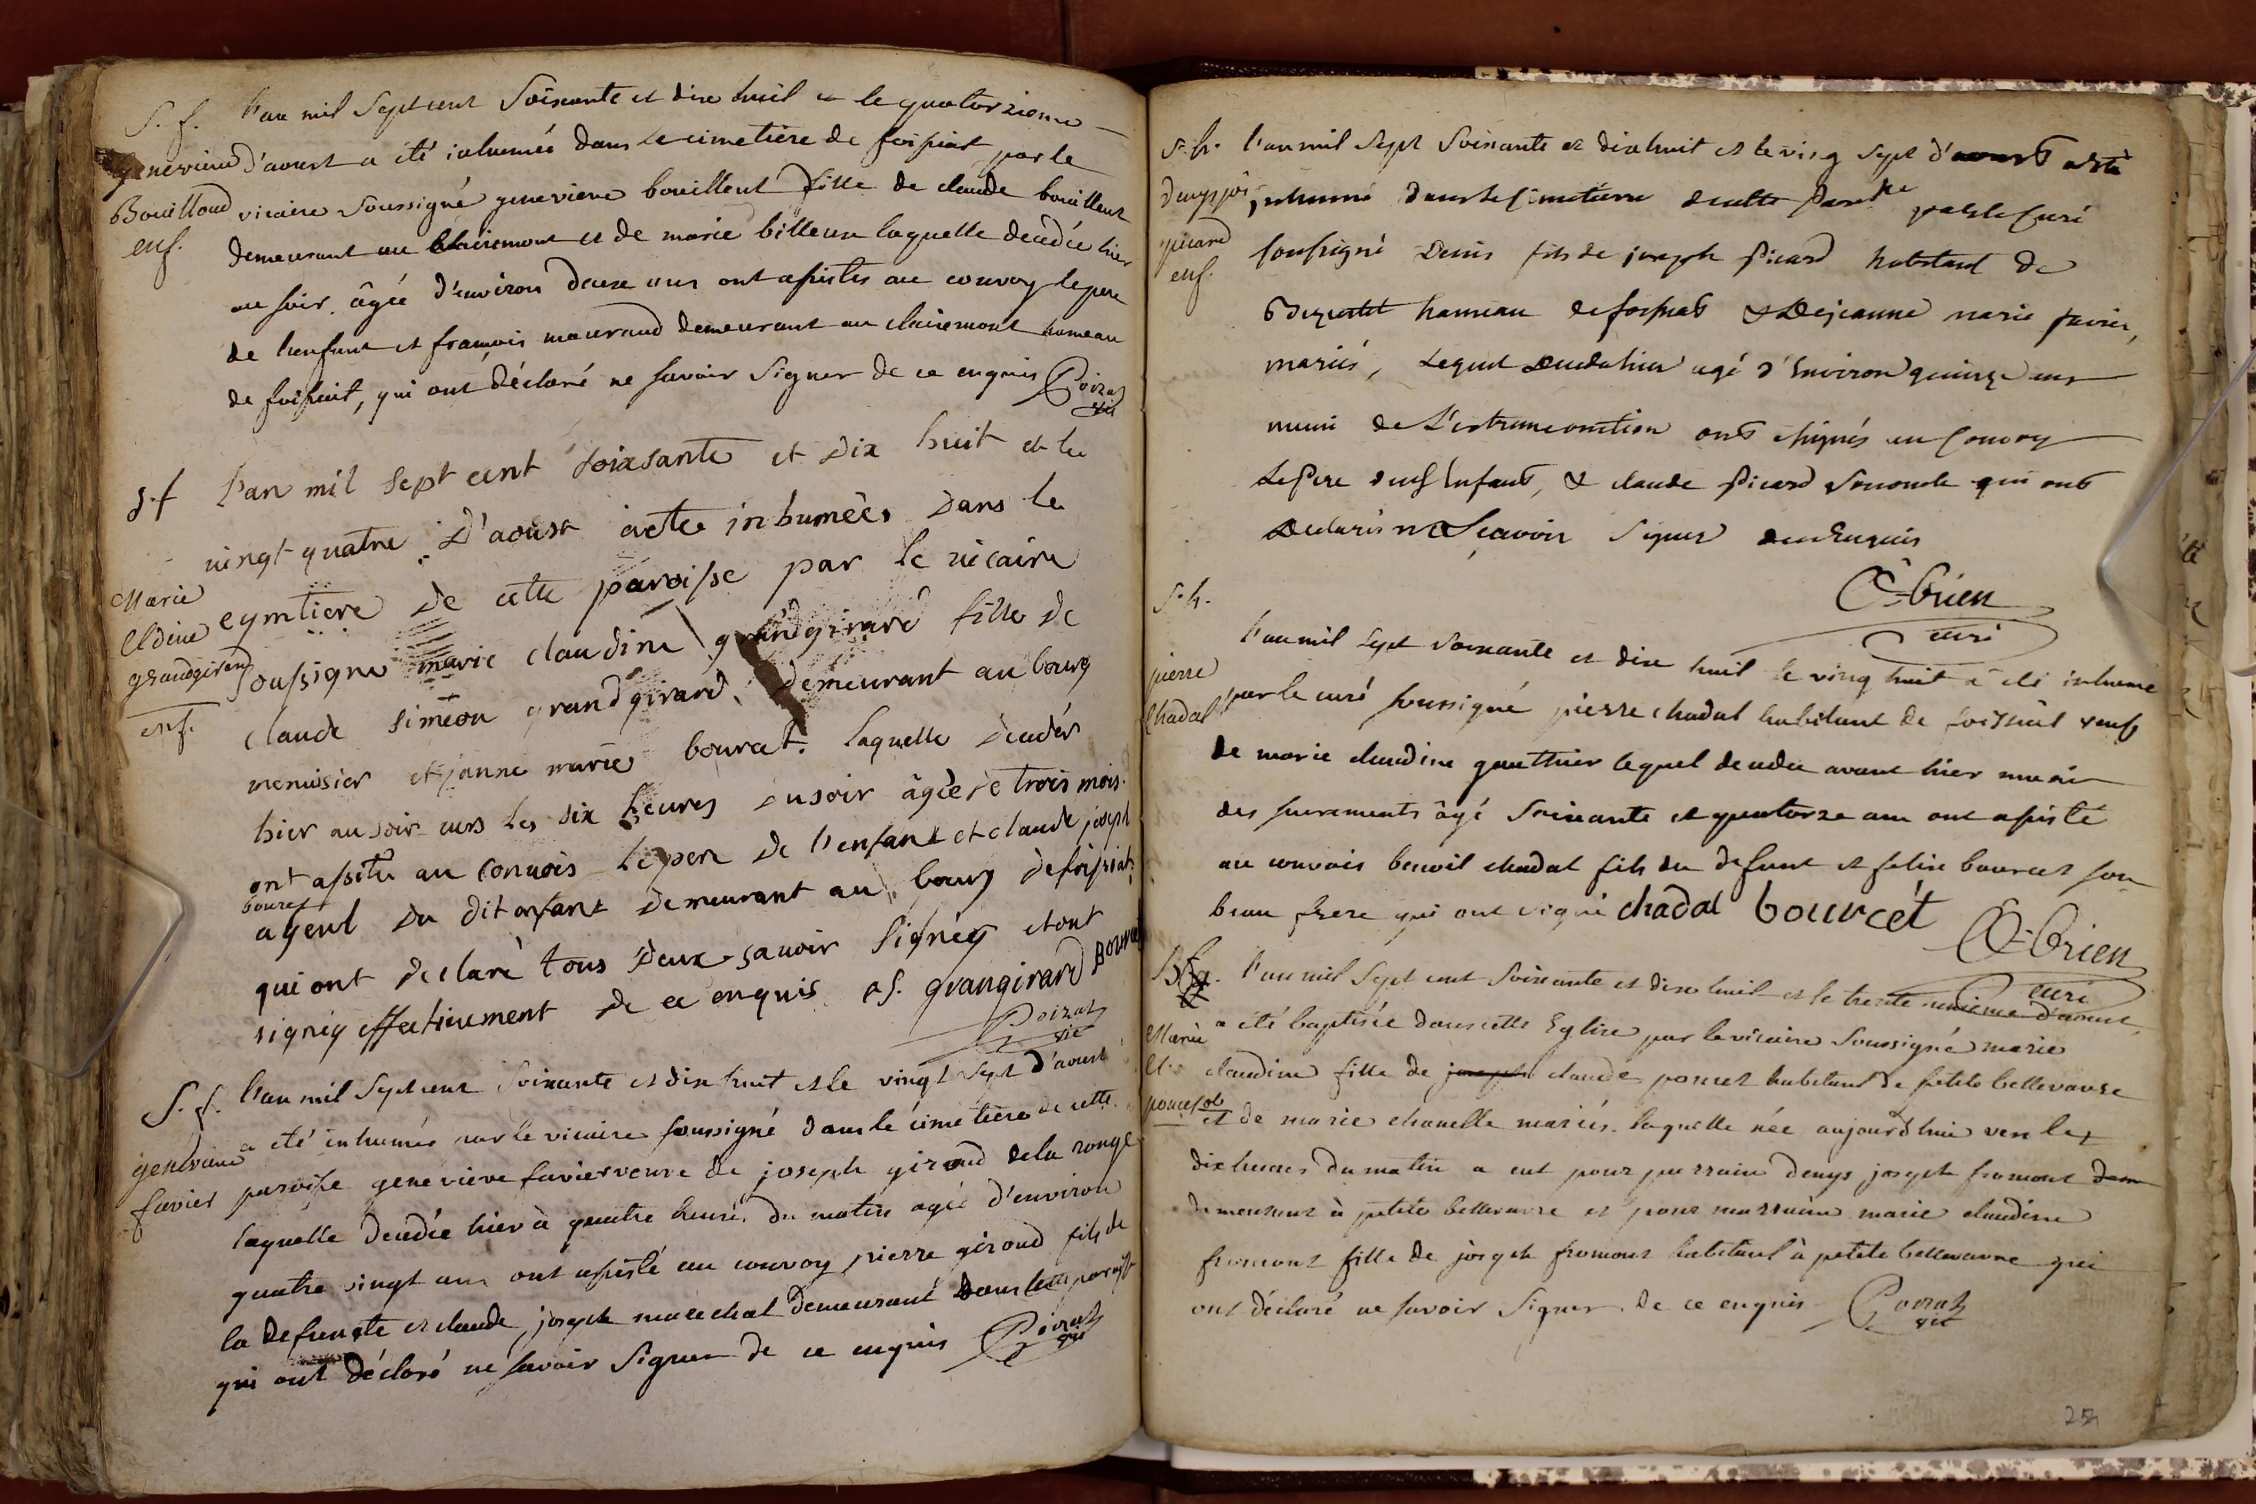 S. f. l'an mil Sept cent Soixante et dix huit et le quatorzieme
genevieve d'aoust a été inhumée dans le cimetière de foissiat par le
Bouilloud vicaire soussigné genevieve bouilleut fille de claude bouilleut
enf. demeurant au clairemont et de marie billeu laquelle decedée hier
au soir âgée d'environ deux ans ont assistes au convoy le pere
de l'enfant et francois mouraud demeurant au clairemont hameau
de foissiat, qui ont déclaré ne savoir signer de ce enquis Poizat
vic
S. f L'an mil sept cent soixsante et dix huit et le
vingt quatre D'aoust aeté inhumeés Dans le
Marie
Cldine
grandgirard
enf.
cymtiere De cette paroisse par le vicaire
Soussigne marie claudine grandgirard fille de
claude simeon grandgirard, demeurant au bourg
menuisier et janne marie bourcet. laquelle decedés
hier au soir vers les dix heures du soir âgée de trois mois.
ont assisté au convois le pere De l'enfant et claude joseph
bourcet
ayeul Du dit enfant demeurant au bourg de foissiat
qui ont declaré tous Deux savoir signég et ont
signég effectivement De ce enquis. c s. grangirard Bourcet
Poizat
vic
S. f. l'an mil sept cent soixante et dix huit et le vingt sept d'aoust
genevieve a été inhumée par le vicaire soussigné dans le cimetière de cette
favier paroisse genevieve favier veuve de joseph giroud de la ronge
laquelle decedée hier à quatre heures du matin agée d'environ
quatre vingt ans ont assisté au convoy pierre giroud fils de
la defuncte et claude joseph marechal demeurant dans cette paroisse
qui ont déclaré ne savoir signer de ce enquis Poizat
vic
S. h. l'an mil sept soixante et dix huit et le ving sept d'aoust a esté
denys jos inhumé dans le simetiere de cette par par le curé
picard soussigné Denis fils de joseph Picard habitant de
enf.
hameau de foissiat & De jeanne marie favier,
mariés, Lequel decedé hier agé d'Environ quinze ans
muni de L'extreme onction ont assistés au convoy
Le Pere de l'Enfant, & claude Picard qui ont
Declarés ne sçavoir Signer de ce Enquis
O-brien
curé
S. h.
pierre
chadal
l'an mil sept soixante et dix huit le ving huit a été inhumé
par le curé soussigné pierre chadal habitant de foissiat veuf
de marie claudine gauthier lequel decedé avant hier muni
des sacrements âgé soixante et quatorze ans ont assisté
au convois benoit chadal fils du defunt et felix bourcet son
beau frere qui ont signé chadal bourcét O-brien
curé
B. f. l'an mil sept cent soixante et dix huit et le trente unieme d'aoust
Marie a été baptisée dans cette Eglise par le vicaire Soussigné marie
Cl. claudine fille de joseph claude poncet habitant de petite bellevavre
poncet et de marie chanelle mariés. laquelle née aujourdhui vers les
dix heures du matin a eut pour parrain denys joseph fromont dem
demeurant à petite bellevavre et pour marraine marie claudine
fromont fille de joseph fromont habitant à petite bellevavre qui
ont déclaré ne savoir signer de ce enquis Poizat
vic
254